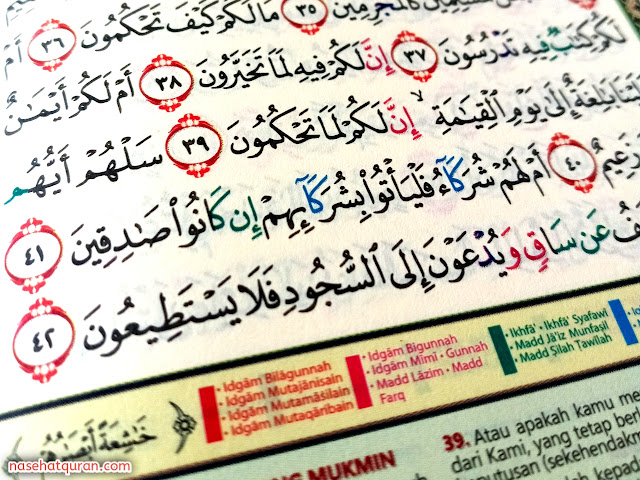 لِمِينَ كَٱلْمُجْرِمِينَ ٣٥ مَا لَكُمْ كَيْفَ تَحْكُمُونَ ٣٦ أَمْ
لَكُمْ كِتَٰبٌ فِيهِ تَدْرُسُونَ ٣٧ إِنَّ لَكُمْ فِيهِ لَمَا تَخَيَّرُونَ ٣٨ أَمْ لَكُمْ أَيْمَٰنٌ
بَٰلِغَةٌ إِلَىٰ يَوْمِ ٱلْقِيَٰمَةِ ۙ إِنَّ لَكُمْ لَمَا تَحْكُمُونَ ٣٩ سَلْهُمْ أَيُّهُم
زَعِيمٌ ٤٠ أَمْ لَهُمْ شُرَكَآءُ فَلْيَأْتُوا۟ بِشُرَكَآئِهِمْ إِن كَانُوا۟ صَٰدِقِينَ ٤١
فُ عَن سَاقٍ وَيُدْعَوْنَ إِلَى ٱلسُّجُودِ فَلَا يَسْتَطِيعُونَ ٤٢
خَٰشِعَةً أَبْصَٰرُهُمْ
• Idgām Bilāgunnah
• Idgām Mutajānisain
• Idgām Mutamāṡilain
• Idgām Mutaqāribain
• Idgām Bigunnah
• Idgām Mīmī • Gunnah
• Madd Lāzim • Madd
Farq
• Ikhfā' • Ikhfā' Syafawī
• Madd Jā'iz Munfaṣil
• Madd Ṣilah Ṭawīlah
MUKMIN
39. Atau apakah kamu me
dari Kami, yang tetap be
putusan (sekehendakm
nasehatquran.com